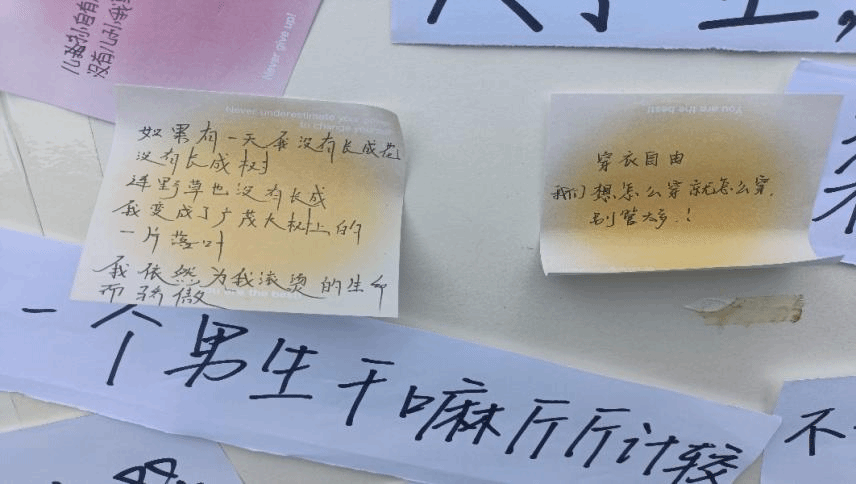 没有儿孙
Never give up!
大学生
Never underestimate your power
to change yourself
如果有一天我没有长成花
没有长成树
连野草也没有长成
我变成了广茂大树上的
一片落叶
我依然为我滚烫的生命
而骄傲
You are the best!
You are the best!
穿衣自由
我们想怎么穿就怎么穿,
别管太多!
一个男生干嘛斤斤计较
不